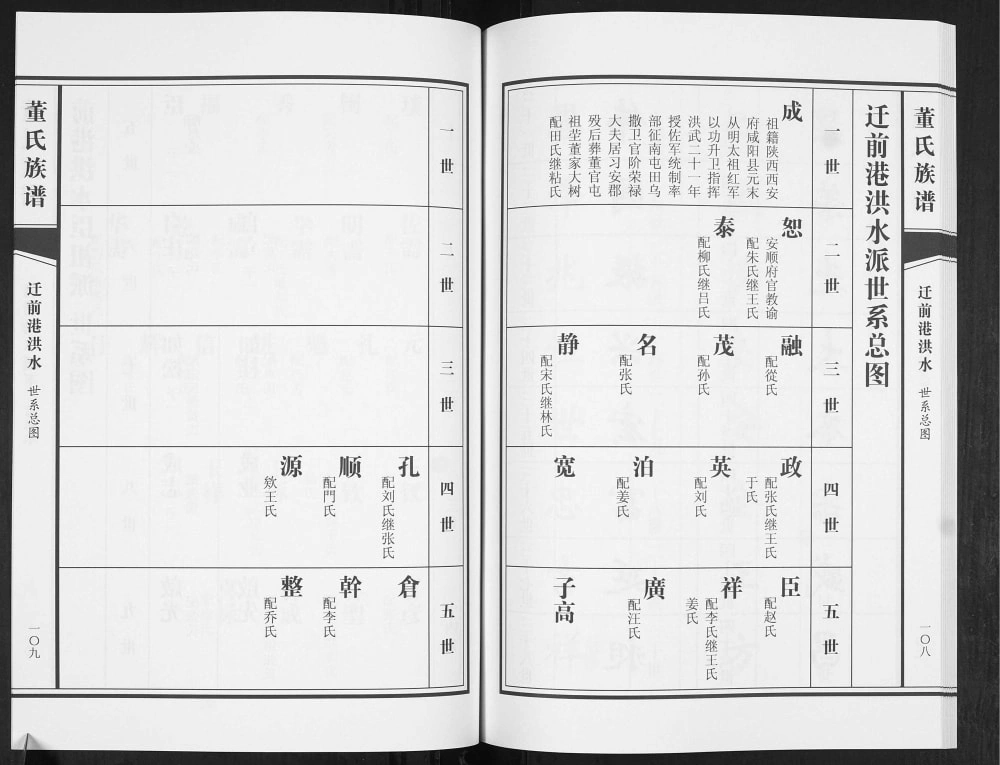 董氏族谱
迁前港洪水 世系总图
一〇八
迁前港洪水派世系总图
一世
成
祖籍陕西西安
府咸阳县元末
从明太祖红军
以功升卫指挥
洪武二十一年
授佐军统制率
部征南屯田乌
撒卫官阶荣禄
大夫居习安郡
殁后葬董官屯
祖茔董家大树
配田氏继粘氏
二世
恕
安顺府官教谕
配朱氏继王氏
泰
配柳氏继吕氏
三世
融
配從氏
茂
配孙氏
名
配张氏
静
配宋氏继林氏
四世
政
配张氏继王氏
于氏
英
配刘氏
泊
配姜氏
宽
五世
臣
配赵氏
祥
配李氏继王氏
姜氏
廣
配汪氏
子高
一世
二世
三世
四世
孔
配刘氏继张氏
顺
配門氏
源
欸王氏
五世
倉
幹
配李氏
整
配乔氏
董氏族谱
迁前港洪水 世系总图
一〇九